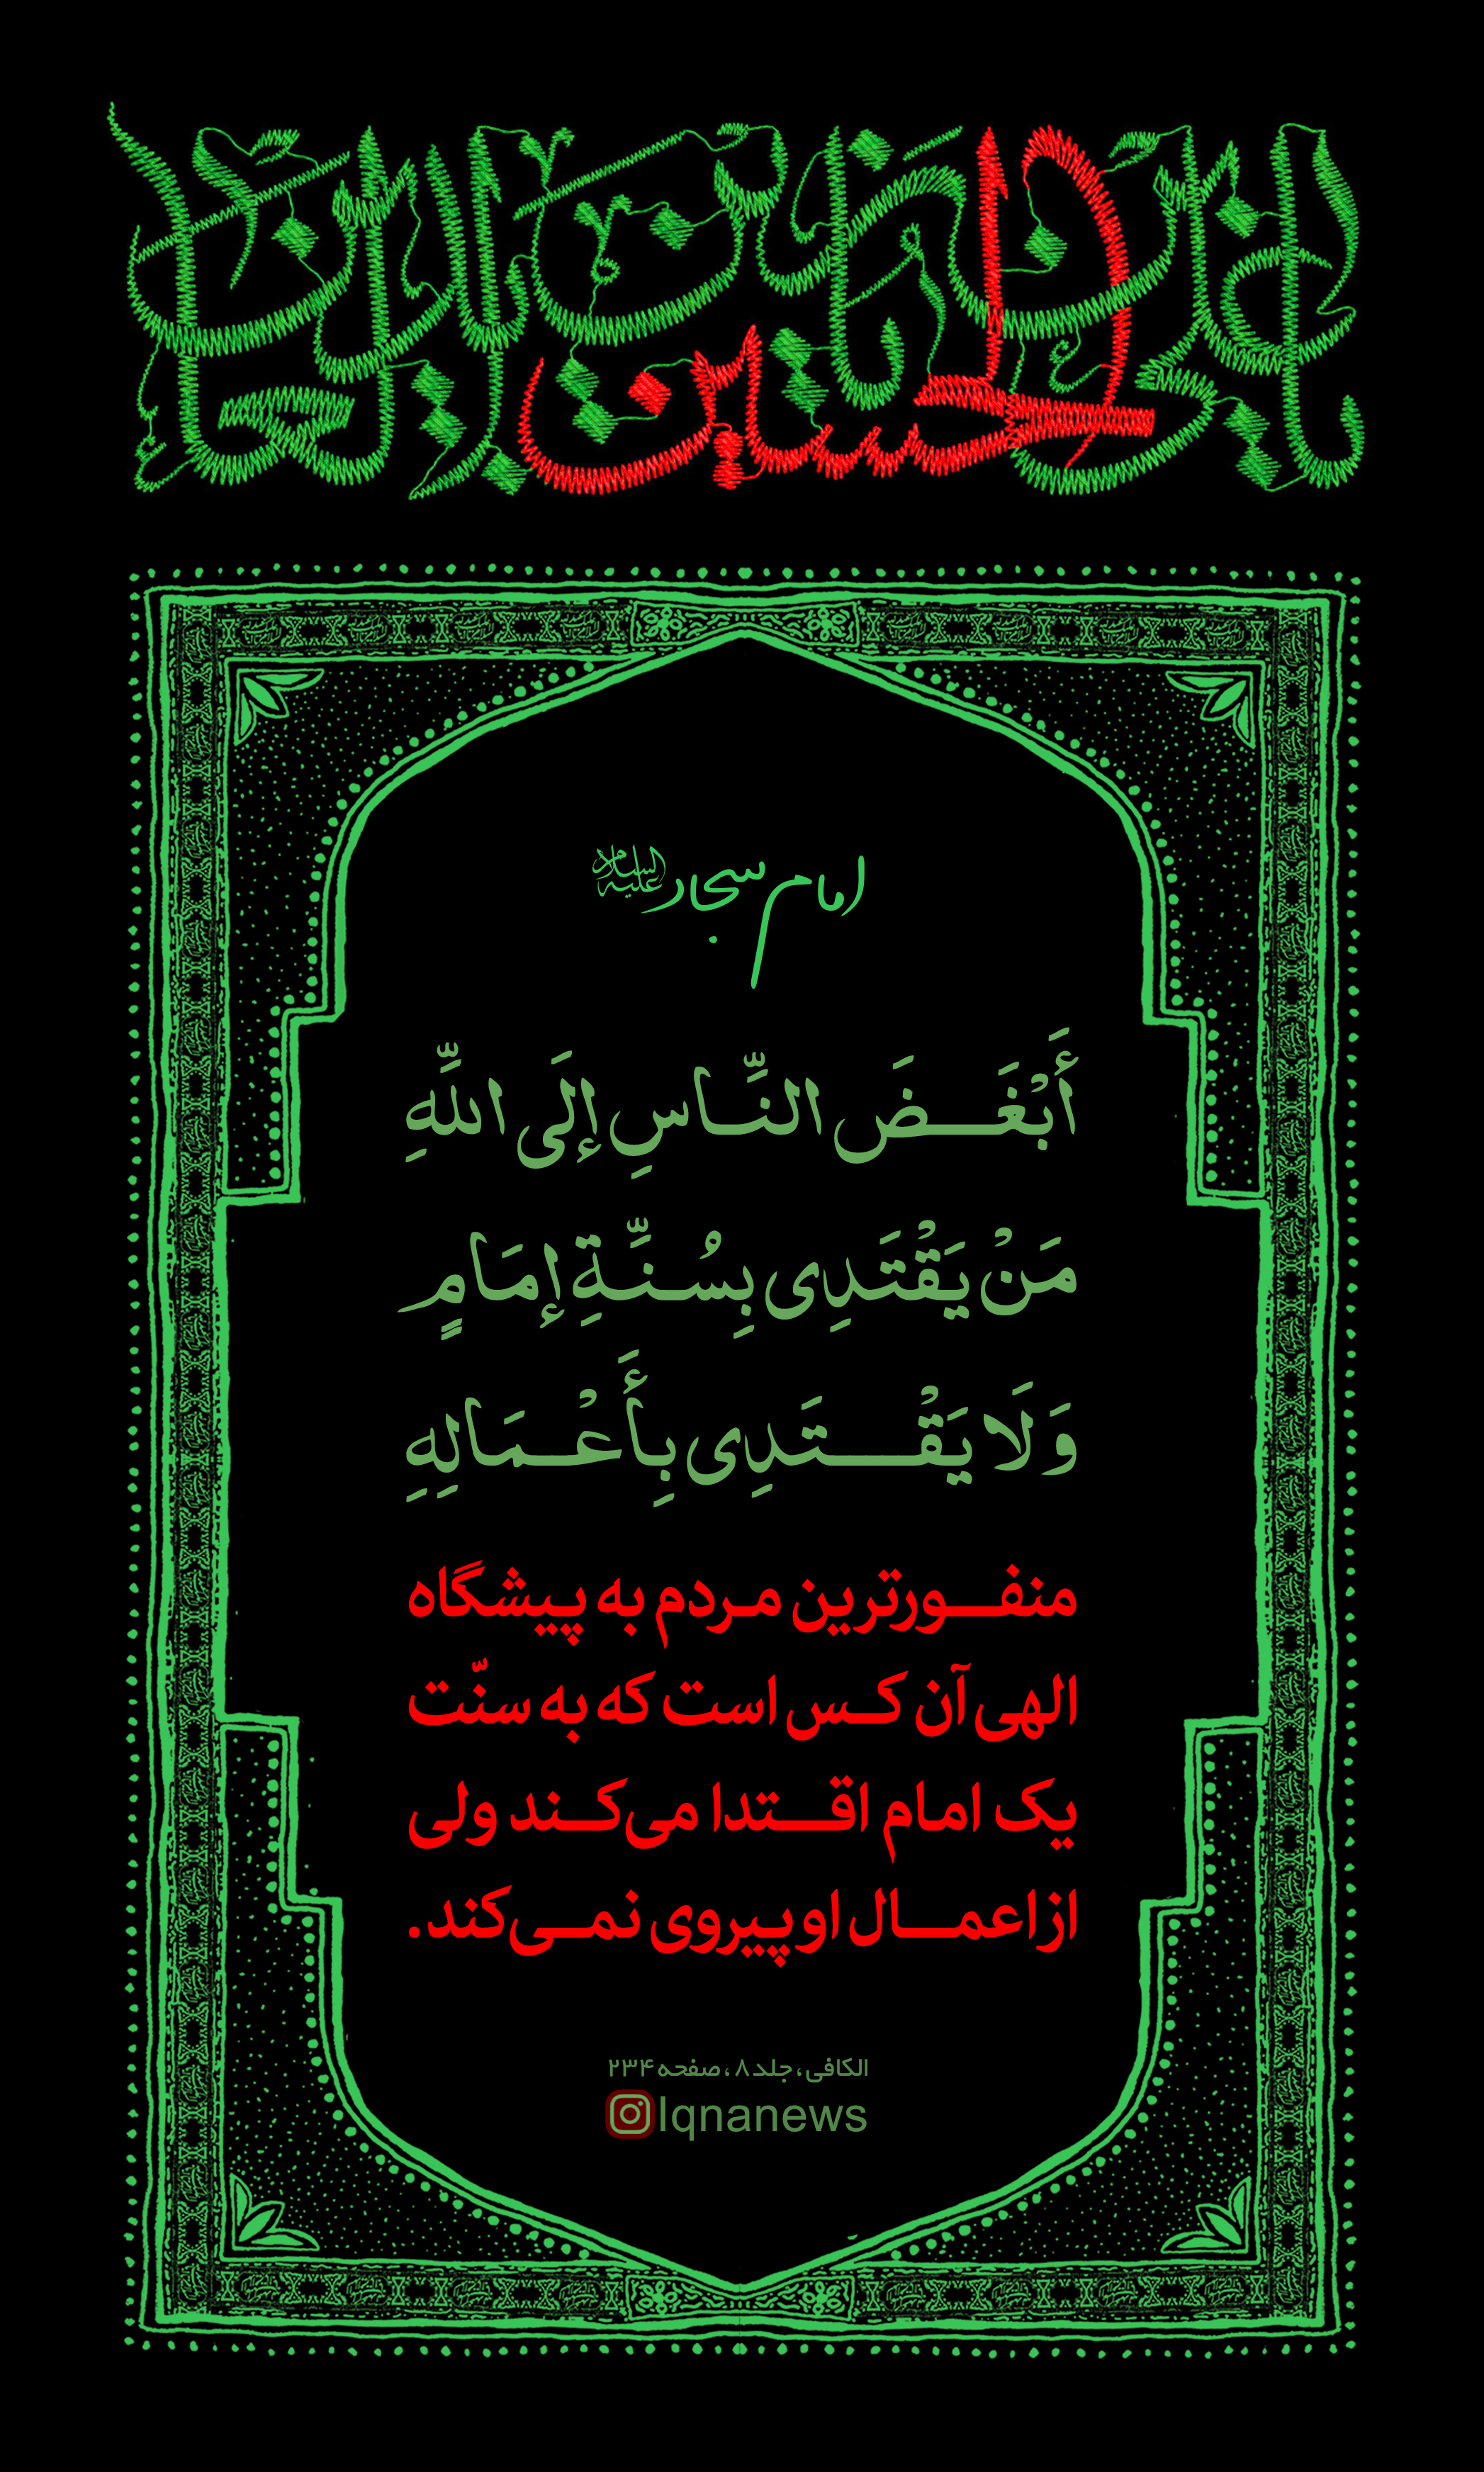 الحسین
امام سجاد علیه السلام
أَبْغَضَ النَّاسِ إِلَى اللَّهِ
مَنْ يَقْتَدِی بِسُنَّةِ إِمَامٍ
وَلَا يَقْتَدِی بِأَعْمَالِهِ
منفورترین مردم به پیشگاه
الهی آن کس است که به سنّت
یک امام اقتدا می‌کند ولی
از اعمال او پیروی نمی‌کند.
الکافی، جلد ۸، صفحه ۲۳۴
Iqnanews